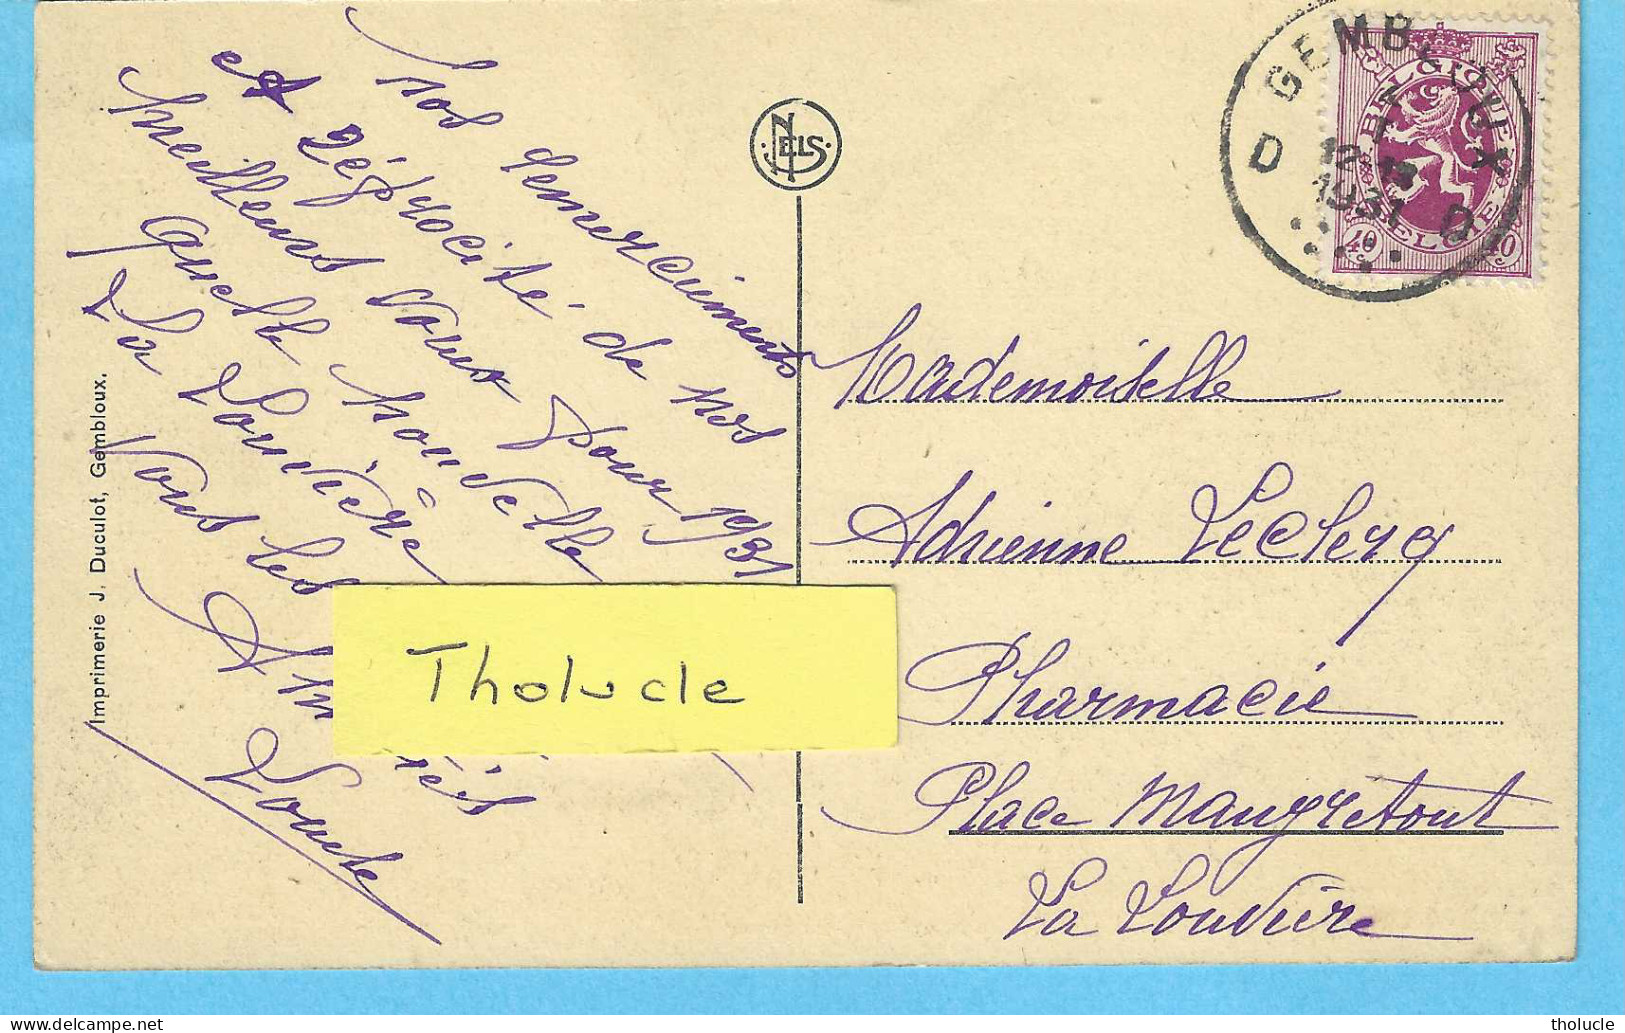 Nos remerciements
et réciprocité de nos
meilleurs vœux pour 1931
Quelle nouvelle
La Louvière
Vous les
Amitiés
Imprimerie J. Duculot, Gembloux.
NELS
GEMBLOUX
D D
12
1931
BELGIQUE
BELGIE
40 c 40 c
Mademoiselle
Adrienne Leclercq
Pharmacie
Place Maugretout
La Louvière
Tholucle
tholucle